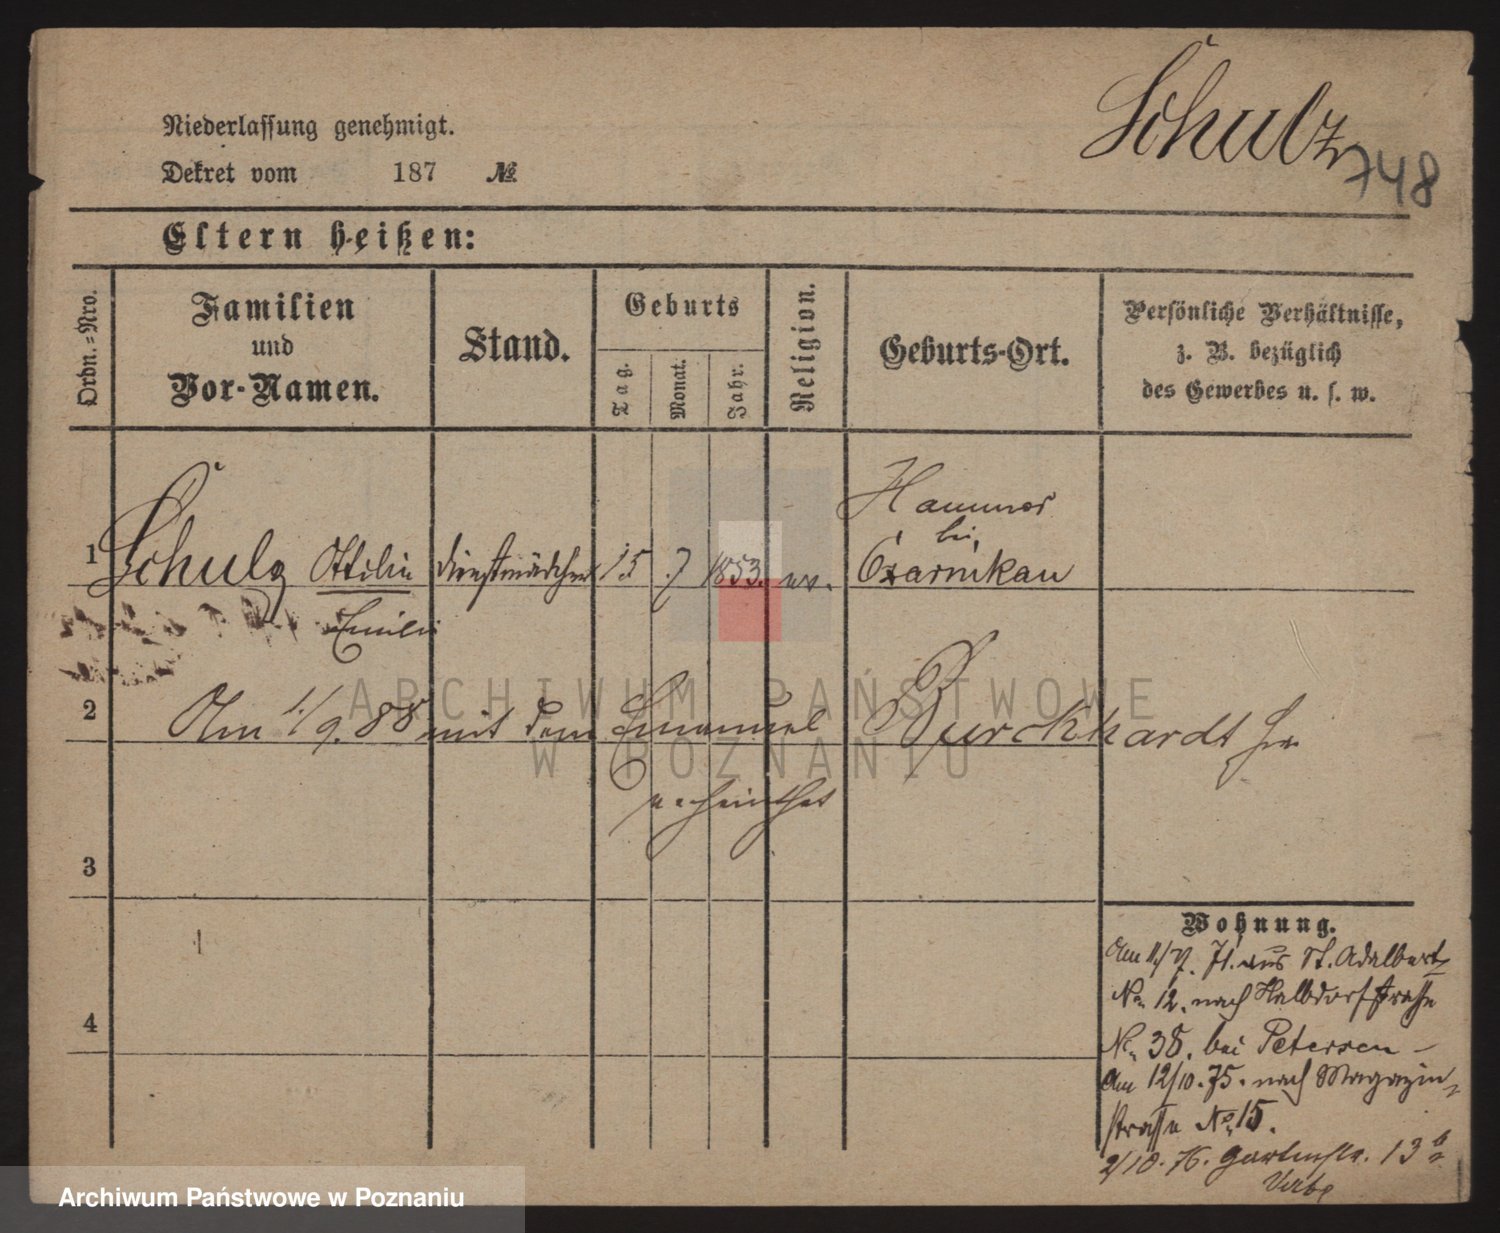 Schulz
748
Niederlassung genehmigt.
Dekret vom 187 №
Eltern heißen:
Ordn.=Nro.
Familien und Vor-Namen.
Stand.
Geburts
Tag.
Monat.
Jahr.
Religion.
Geburts-Ort.
Persönliche Verhältnisse,
z. B. bezüglich
des Gewerbes u. s. w.
Hammer
bei
1 Schulz Ottilie Dienstmädchen 15 7 1853. ev. Czarnikau
Emilie
2 Am 1/9. 88 mit dem Emanuel Burckhardt hier
verheirathet
3
4
Wohnung.
Am 11/7. 71. aus St. Adalbert
No 12. nach Halbdorfstrasse
No 38. bei Petersen
Am 12/10. 75. nach Magazin
strasse No 15.
2/10. 76. Gartenstr. 13
ARCHIWUM PAŃSTWOWE
W POZNANIU
Archiwum Państwowe w Poznaniu